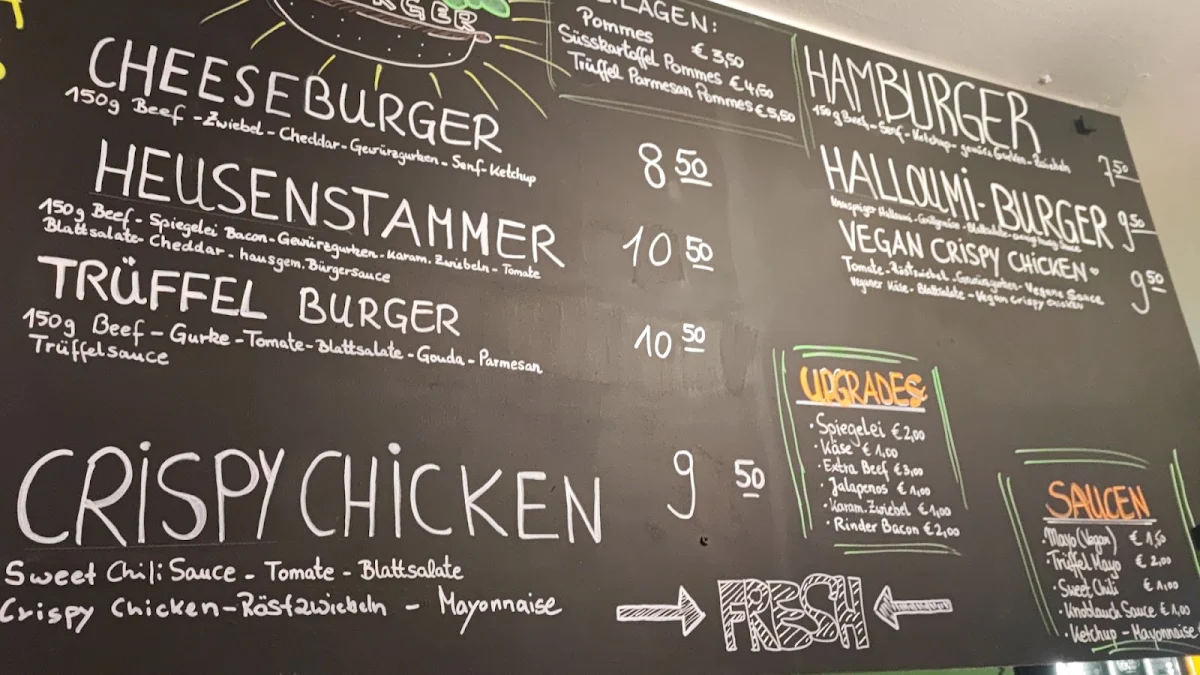 CHEESEBURGER
150g Beef - Zwiebel - Cheddar - Gewürzgurken - Senf - Ketchup
8 50
HEUSENSTAMMER
150g Beef - Spiegelei Bacon - Gewürzgurken - Karam. Zwiebeln - Tomate
Blattsalate - Cheddar - hausgem. Bürgersauce
10 50
TRÜFFEL BURGER
150g Beef - Gurke - Tomate - Blattsalate - Gouda - Parmesan
Trüffelsauce
10 50
CRISPY CHICKEN
9 50
Sweet Chili Sauce - Tomate - Blattsalate
Crispy Chicken - Röstzwiebeln - Mayonnaise
Pommes € 3,50
Süsskartoffel Pommes € 4,50
Trüffel Parmesan Pommes € 5,50
HAMBURGER
150g Beef - Senf - Ketchup
7 50
HALLOUMI-BURGER 9 50
VEGAN CRISPY CHICKEN
Tomate - Röstzwiebel - Gewürzgurken - Vegane Sauce
Veganer Käse - Blattsalate - Vegan crispy chicken
9 50
UPGRADES
· Spiegelei € 2,00
· Käse € 1,00
· Extra Beef € 3,00
· Jalapenos € 1,00
· Karam. Zwiebel € 1,00
· Rinder Bacon € 2,00
SAUCEN
Mayo (Vegan) € 1,50
· Trüffel Mayo € 2,00
· Sweet Chili € 1,00
· Knoblauch Sauce € 1,00
· Ketchup - Mayonnaise
FRESH